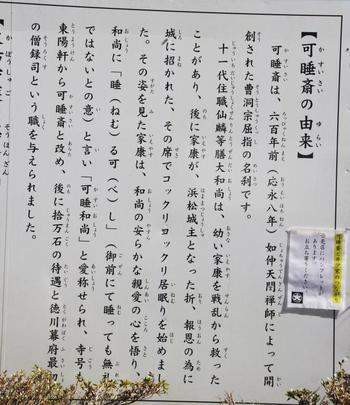 【可睡斎の由来】
可睡斎は、六百年前（応永八年）如仲天誾禅師によって開
創された曹洞宗屈指の名刹です。
十一代住職仙麟等膳大和尚は、幼い家康を戦乱から救った
ことがあり、後に家康が、浜松城主となった折、報恩の為に
城に招かれた、その席でコックリコックリ居眠りを始めまし
た。その姿を見た家康は、和尚の安らかな親愛の心を悟り、
和尚に「睡（ねむ）る可（べ）し」（御前にて睡っても無礼
ではないとの意）と言い「可睡和尚」と愛称せられ、寺号
東陽軒から可睡斎と改め、後に拾万石の待遇と徳川幕府最
の僧録司という職を与えられました。